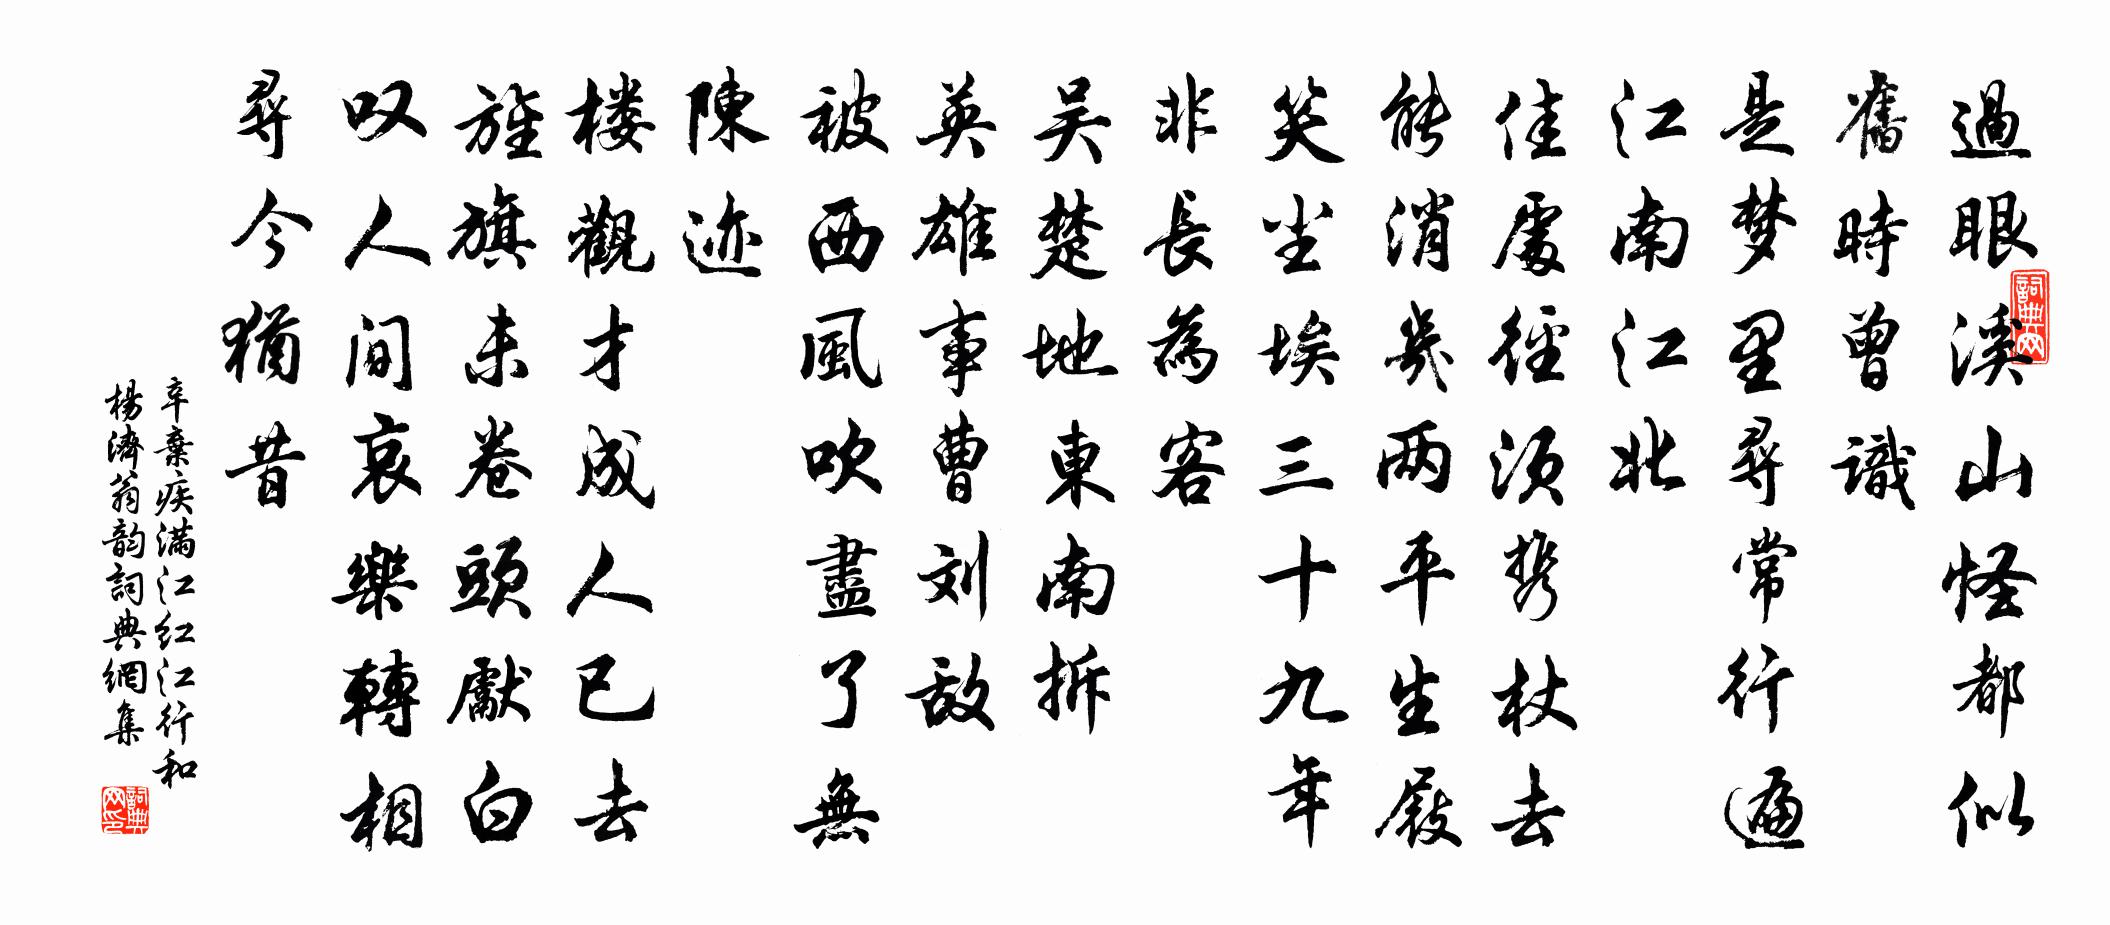 過眼溪山怪都似
舊時曾識
是梦里尋常行遍
江南江北
佳處徑須携杖去
能消幾两平生屐
笑尘埃三十九年
非長為客
吴楚地東南拆
英雄事曹刘敌
被西風吹盡了無
陳迹
楼觀才成人已去
旌旗未卷頭獻白
叹人間哀樂轉相
尋今猶昔
辛棄疾满江红江行和
楊濟翁韵詞典網集
詞典网
詞典网印